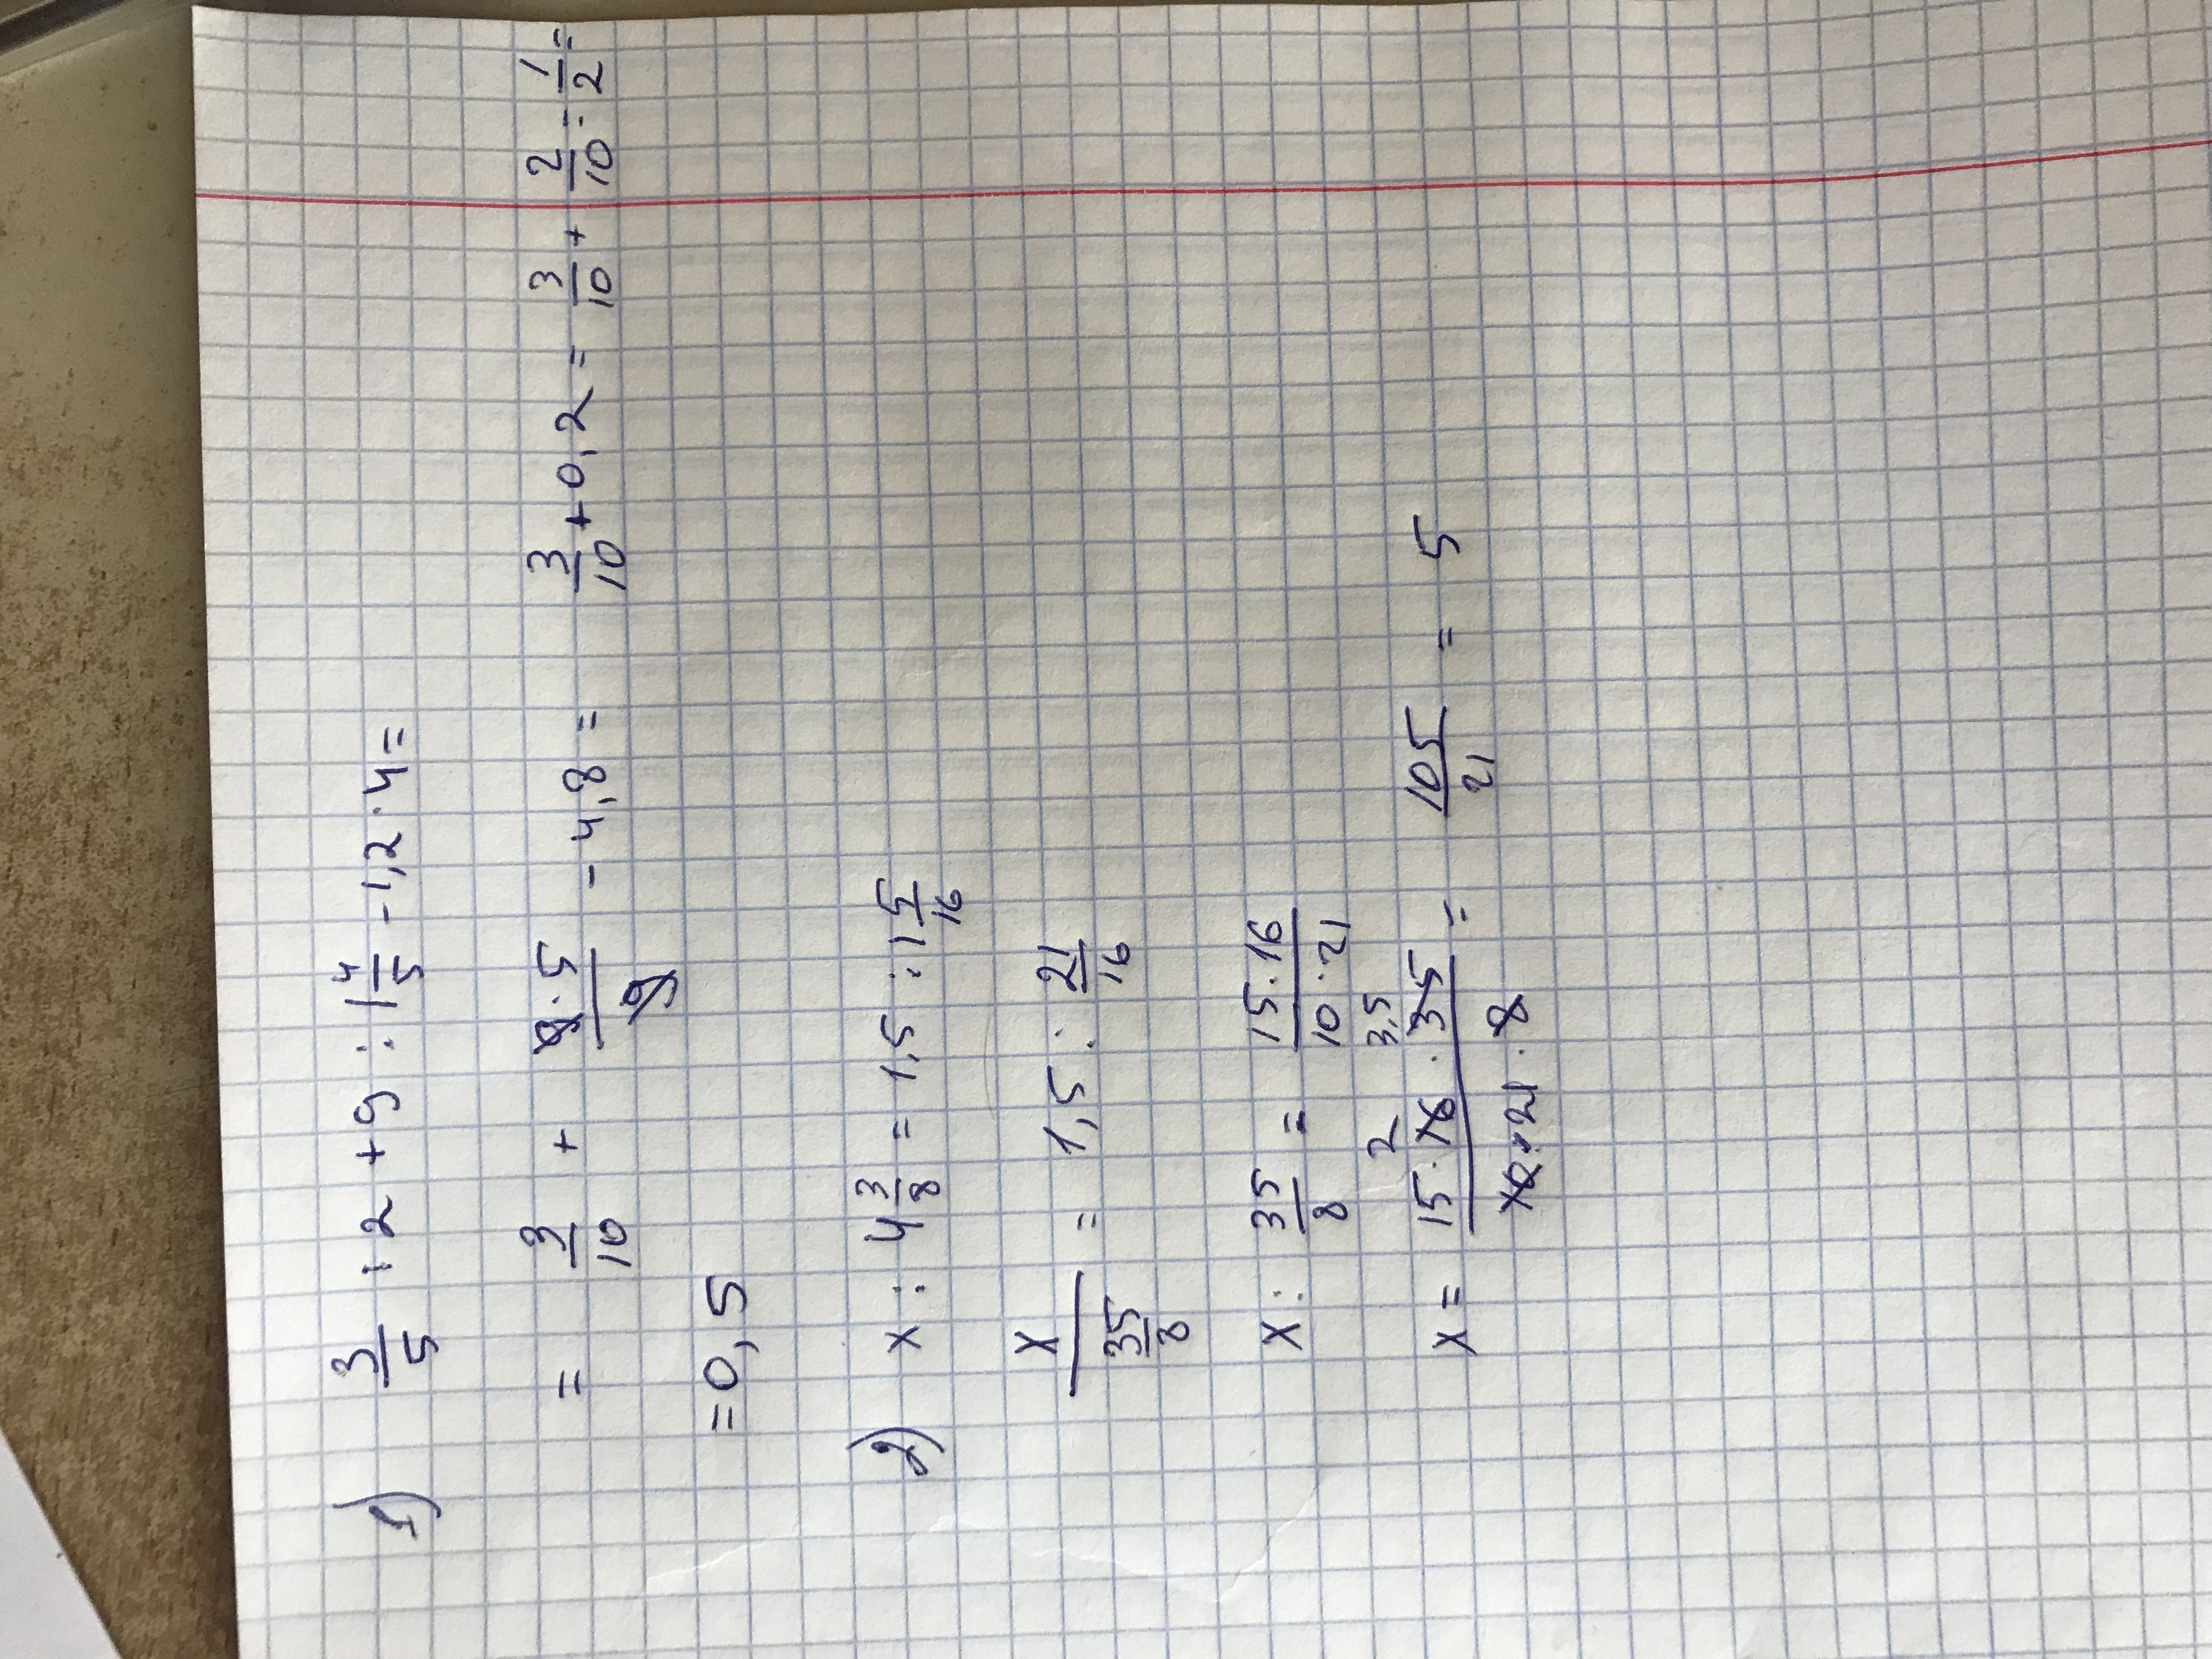 1) 3/5 : 2 + 9 : 1 4/5 - 1,2 · 4 =
= 3/10 + 9 · 5/9 - 4,8 = 3/10 + 0,2 = 3/10 + 2/10 = 1/2 =
= 0,5
2) x : 4 3/8 = 1,5 : 1 5/16
x / 35/8 = 1,5 : 21/16
x : 35/8 = 15 · 16 / 10 · 21
2 3,5
x = 15 · 16 · 35 / 10 · 21 · 8 = 105/21 = 5